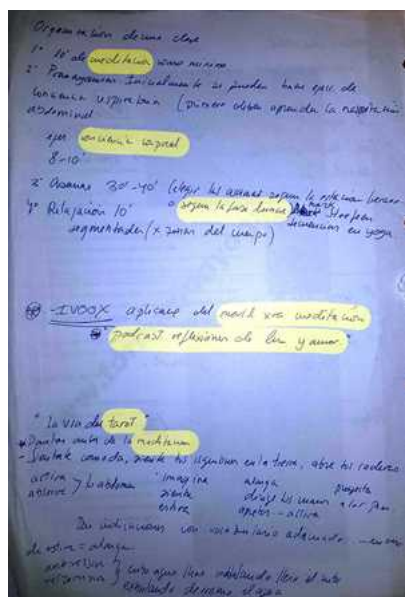 Organización de una clase
1º 10' de meditación como mínimo
2º Pranayamas Inicialmente se pueden hacer ejer. de
conciencia respiratoria (primero deben aprender la respiración
abdominal
ejer. conciencia corporal
8-10'
3º Asanas 30'-40' (elegir las asanas según la estación
o según la fase lunar Stephen
4º Relajación 10' secuencias en yoga
segmentada (x zonas del cuerpo)
- IVOOX aplicac. del movil xra meditación
"podcast reflexiones de luz y amor"
"La vía del tarot"
Pautas antes de la meditación
- Siéntate comoda, siente tus isquiones en la tierra, abre tus caderas
activa y abdomen imagina alarga proyecta
absorve siente dirige tus manos a los
estira aprieta - activa
Da indicaciones con vocabulario adecuado
de estira = alarga